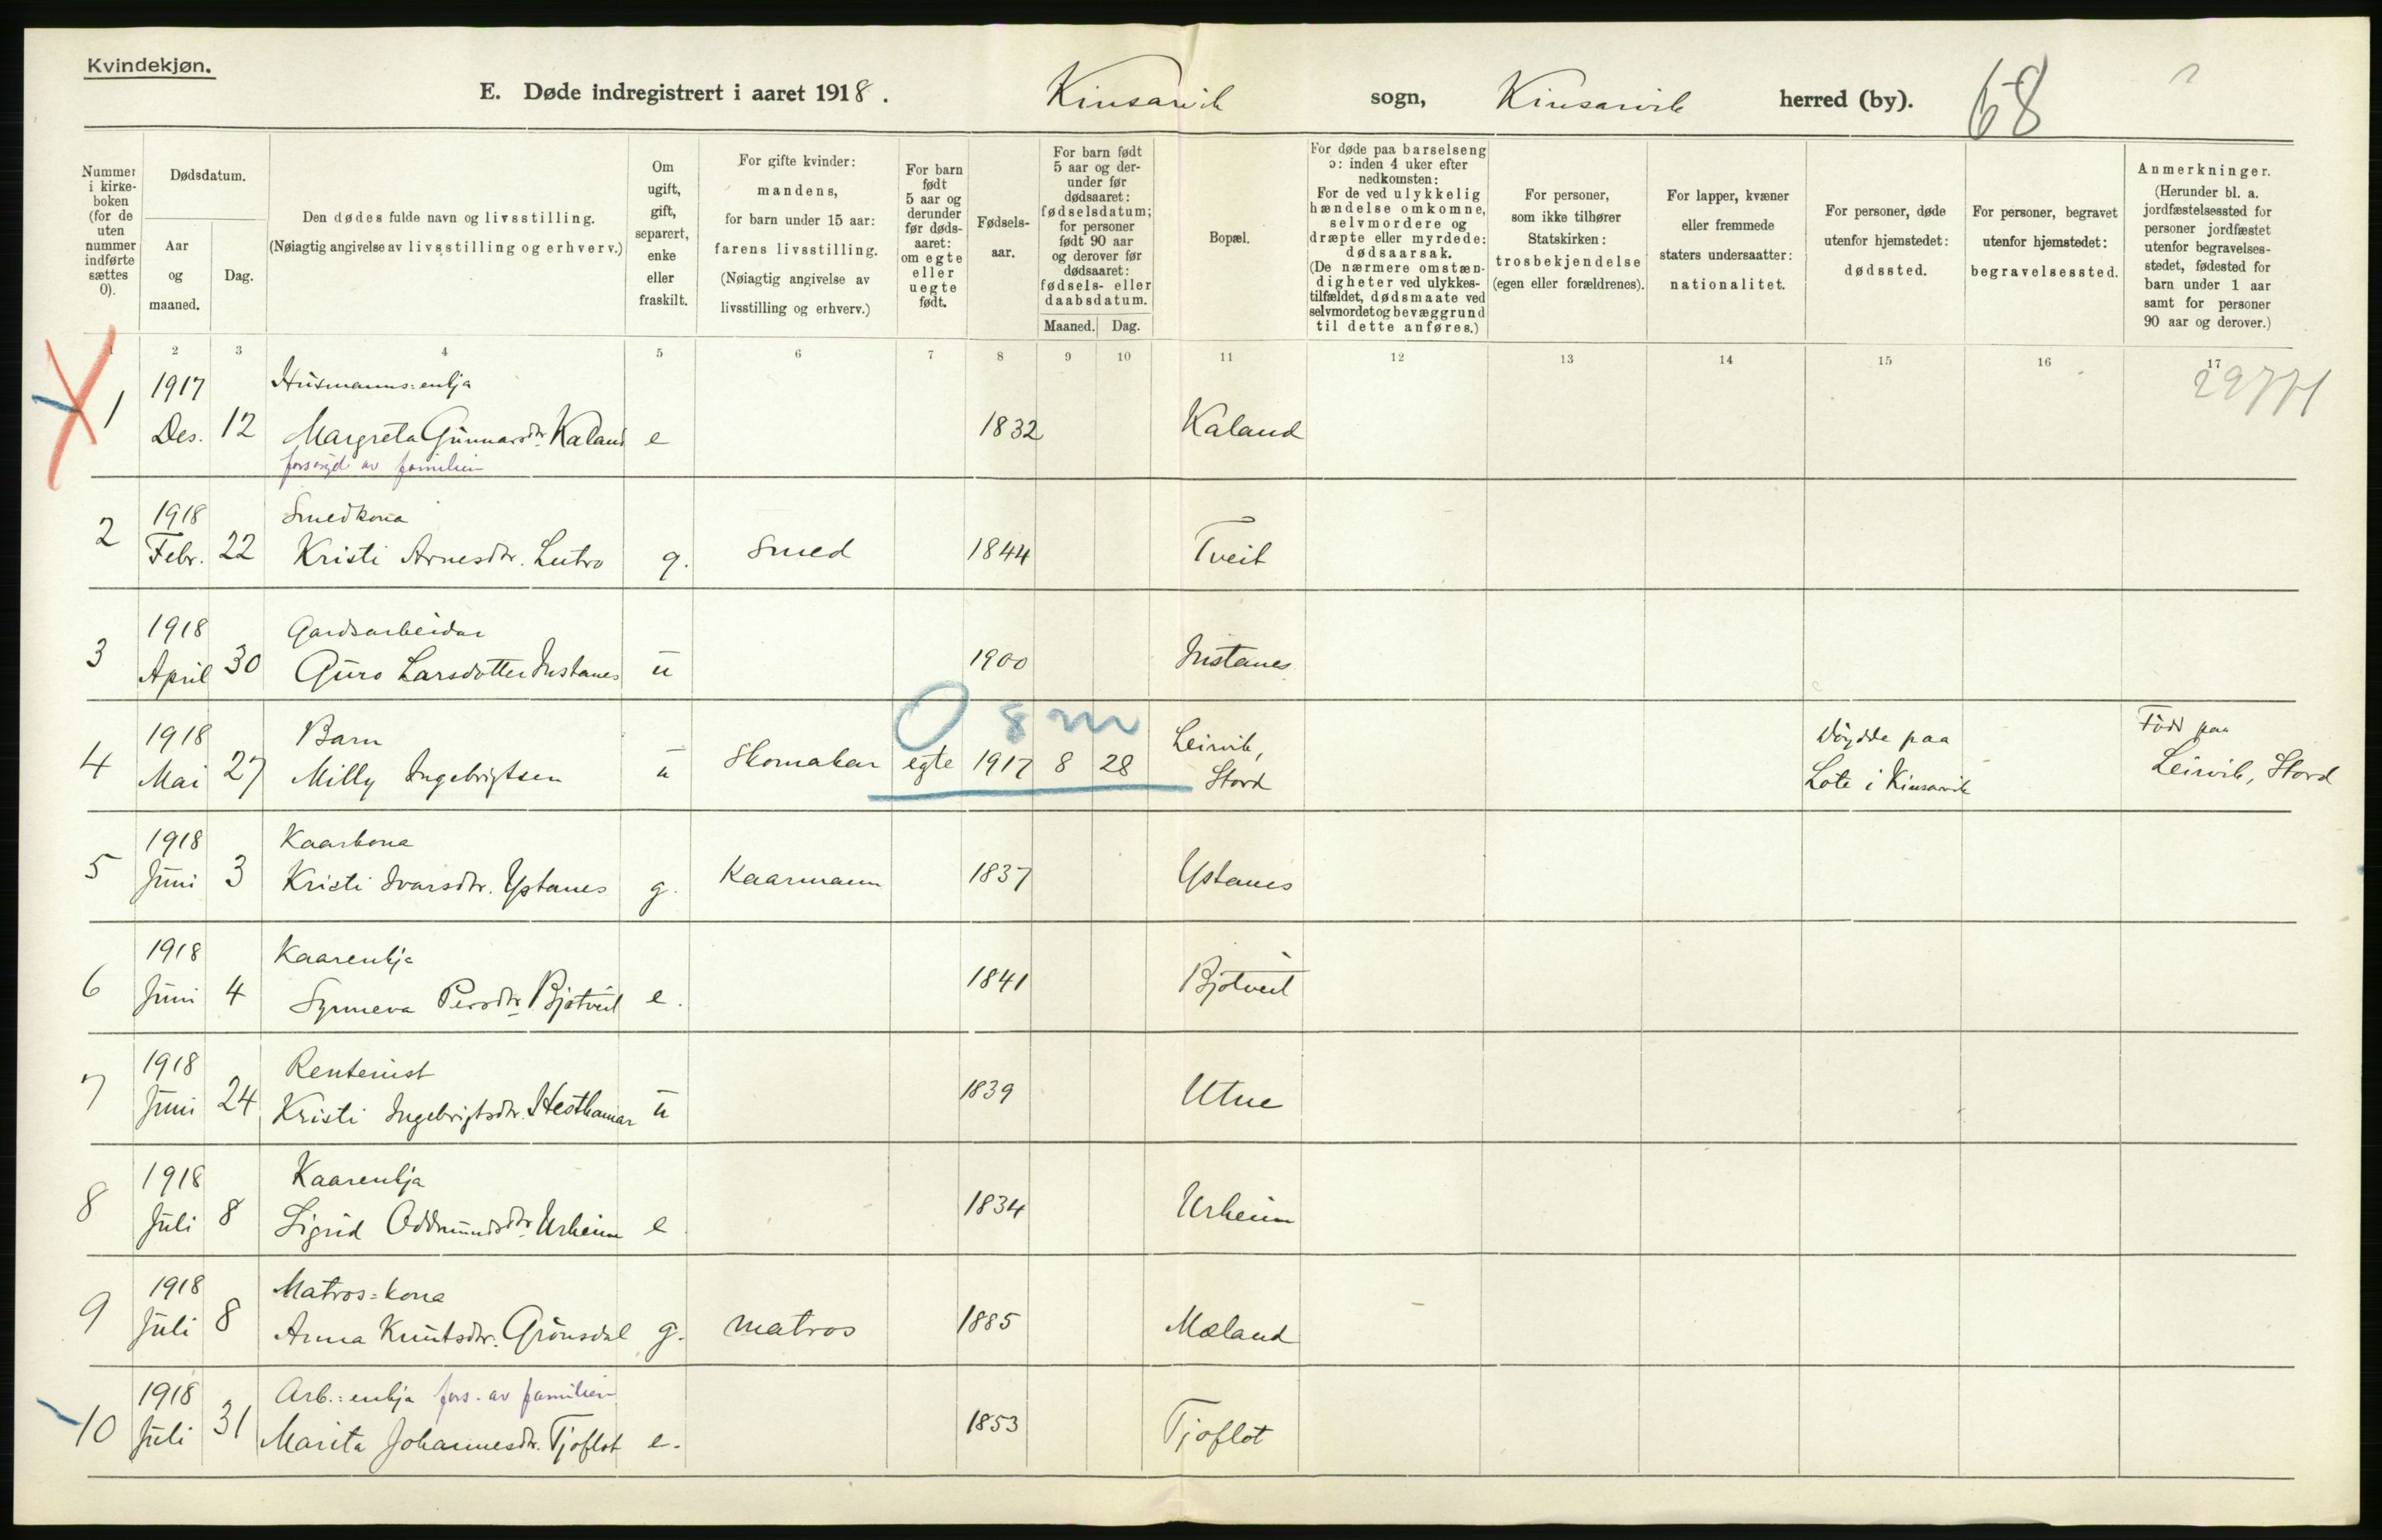 Kvindekjøn.
E. Døde indregistrert i aaret 1918. Kinsarvik sogn, Kinsarvik herred (by). 68
Nummer i kirke-boken (for de uten nummer indførte sættes 0).
Dødsdatum.
Aar og maaned.
Dag.
Den dødes fulde navn og livsstilling.
(Nøiagtig angivelse av livsstilling og erhverv.)
Om ugift, gift, separert, enke eller fraskilt.
For gifte kvinder: mandens, for barn under 15 aar: farens livsstilling. (Nøiagtig angivelse av livsstilling og erhverv.)
For barn født 5 aar og derunder før døds-aaret: om egte eller uegte født.
Fødsels-aar.
For barn født 5 aar og der-under før dødsaaret: fødselsdatum; for personer født 90 aar og derover før dødsaaret: fødsels- eller daabsdatum.
Maaned. Dag.
Bopæl.
For døde paa barselseng ɔ: inden 4 uker efter nedkomsten: For de ved ulykkelig hændelse omkomne, selvmordere og dræpte eller myrdede: dødsaarsak. (De nærmere omstæn-digheter ved ulykkes-tilfældet, dødsmaate ved selvmordet og bevæggrund til dette anføres.)
For personer, som ikke tilhører Statskirken: trosbekjendelse (egen eller forældrenes).
For lapper, kvæner eller fremmede staters undersaatter: nationalitet.
For personer, døde utenfor hjemstedet: dødssted.
For personer, begravet utenfor hjemstedet: begravelsessted.
Anmerkninger. (Herunder bl. a. jordfæstelsessted for personer jordfæstet utenfor begravelses-stedet, fødested for barn under 1 aar samt for personer 90 aar og derover.)
1 2 3 4 5 6 7 8 9 10 11 12 13 14 15 16 17
1917 Husmanns-enkja
1 Des. 12 Margreta Gunnarsdtr. Kaland e 1832 Kaland
forsørgd av familien
1918 Smedkona
2 Febr. 22 Kristi Arnesdtr. Lutro g. Smed 1844 Tveit
1918 Gardsarbeidar
3 April 30 Guro Larsdotter Instanes u 1900 Instanes
0 8 m
1918 Barn Leirvik, Döydde paa Född paa
4 Mai 27 Milly Ingebrigtsen u Skomakar egte 1917 8 28 Stord Lote i Kinsarvik Leirvik, Stord
1918 Kaarkona
5 Juni 3 Kristi Ivarsdtr. Ystanes g. Kaarmann 1837 Ystanes
1918 Kaarenkja
6 Juni 4 Synneva Persdtr. Bjotveit e. 1841 Bjotveit
1918 Rentenist
7 Juni 24 Kristi Ingebrigtsdtr. Hesthamar u 1839 Utne
1918 Kaarenkja
8 Juli 8 Sigrid Oddmundsdtr. Urheim e 1834 Urheim
1918 Matros-kona
9 Juli 8 Anna Knutsdtr. Grönsdal g. matros 1885 Mæland
1918 Arb.-enkja fors. av familien
10 Juli 31 Marita Johannesdtr. Tjoflot e. 1853 Tjoflot